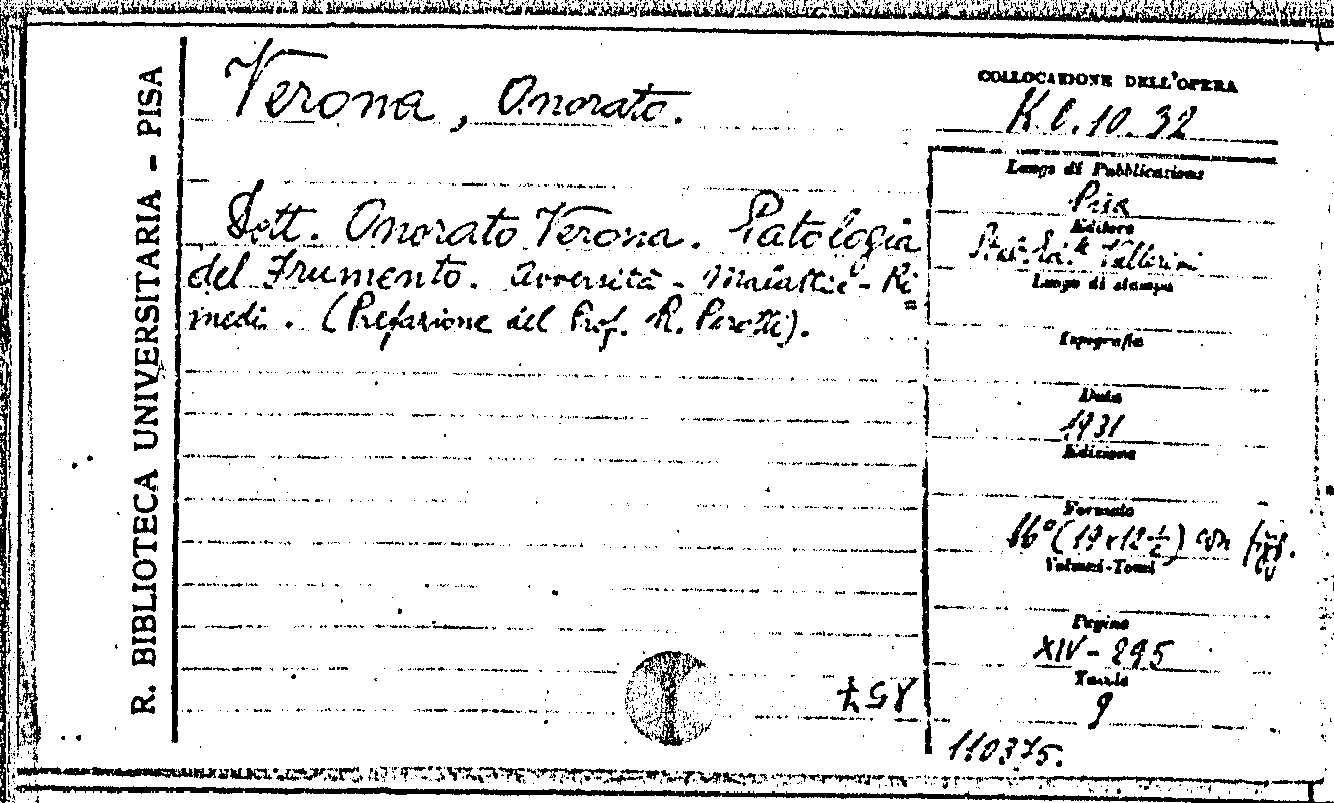 R. BIBLIOTECA UNIVERSITARIA - PISA
Verona, Onorato.
Dott. Onorato Verona. Patologia
del Frumento. Avversità - Malattie - Ri=
medi. (Prefazione del Prof. R. Perotti).
COLLOCAZIONE DELL'OPERA
K.l.10.32
Luogo di Pubblicazione
Pisa
Editore
Vallerini
Luogo di stampa
Tipografia
Data
1931
Edizione
Formato
16° (19x12½) con figg.
Volumi-Tomi
Pagine
XIV - 295
Tavole
9
110375.